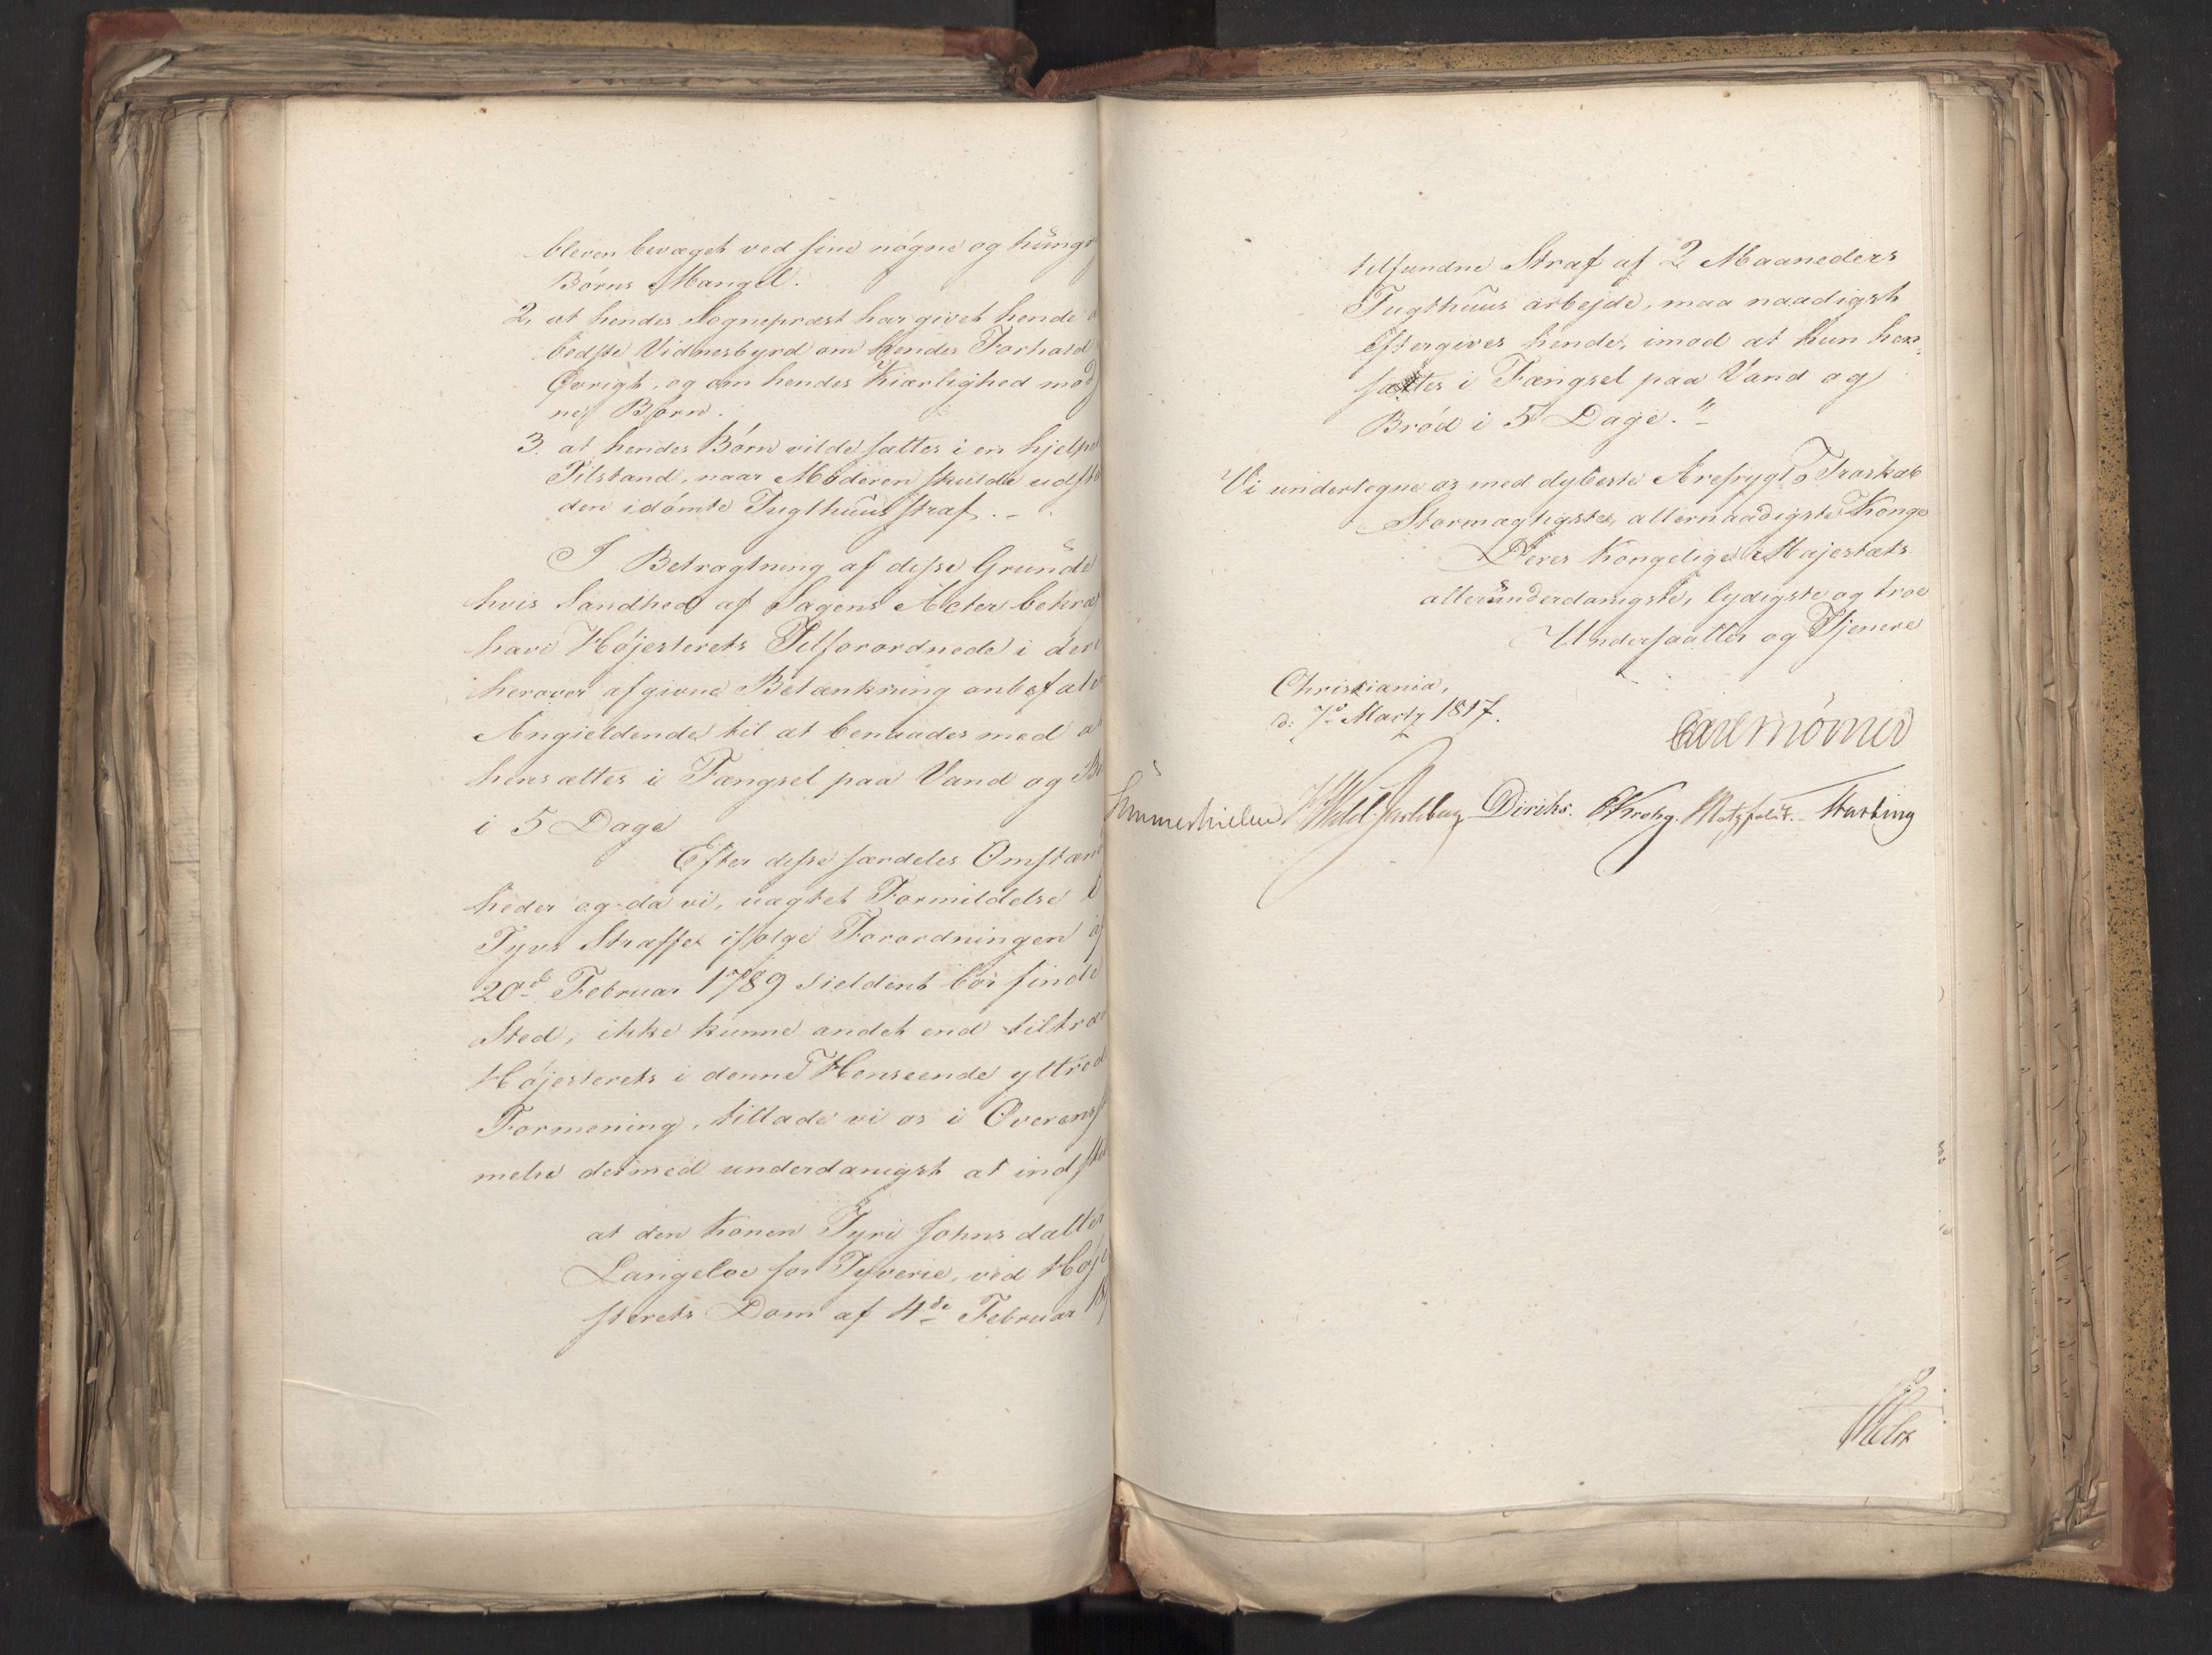 bleven bevæget ved sine nøgne og hung
Børns Mangel.
2, at hendes Sognepræst har givet hende
bedste Vidnesbyrd om hendes Forhold
Øvrigt, og om hendes Kiærlighed mod
nes Børn.
3. at hendes Børn vilde sættes i en hjelpe
Tilstand, naar Moderen skulde udst
den idømte Tugthuus straf. -
I Betragtning af disse Grunde
hvis Sandhed af Sagens Acter bekræf
have Høiesterets Tilforordnede i der
herover afgivne Betænkning anbefalet
Angieldende til at benaades med a
hensættes i Fængsel paa Vand og Br
i 5 Dage
Efter disse særdeles Omstæn
heder og da vi, uagtet Formildelse
Tyvs Straffe ifølge Forordningen af
20de Februar 1789 sieldent bør finde
Sted, ikke kunne andet end tiltræ
Høiesterets i denne Henseende yttred
Formening, tillade vi os i Overens
melse dermed underdanigst at indst
at den Konen Tyri Johnsdatter
Langeloe for Tyverie, ved Høje
sterets Dom af 4de Februar 18
tilfundne Straf af 2 Maaneders
Tugthuus arbejde, maa naadigst
eftergives hende, imod at hun hen-
sættes i Fængsel paa Vand og
Brød i 5 Dage."
Vi undertegne os med dybeste Ærefrygt o Troskab
Stormægtigste, allernaadigste Konge
Deres Kongelige Majestæts
allerunderdanigste, lydigste og troe
Undersaatter og Tjenere
Christiania,
d: 7de Martz 1817.
Carl Mörner
Sommerhielm Wedel Jarlsberg Diriks. CKrohg. Motzfeldt. Harbing